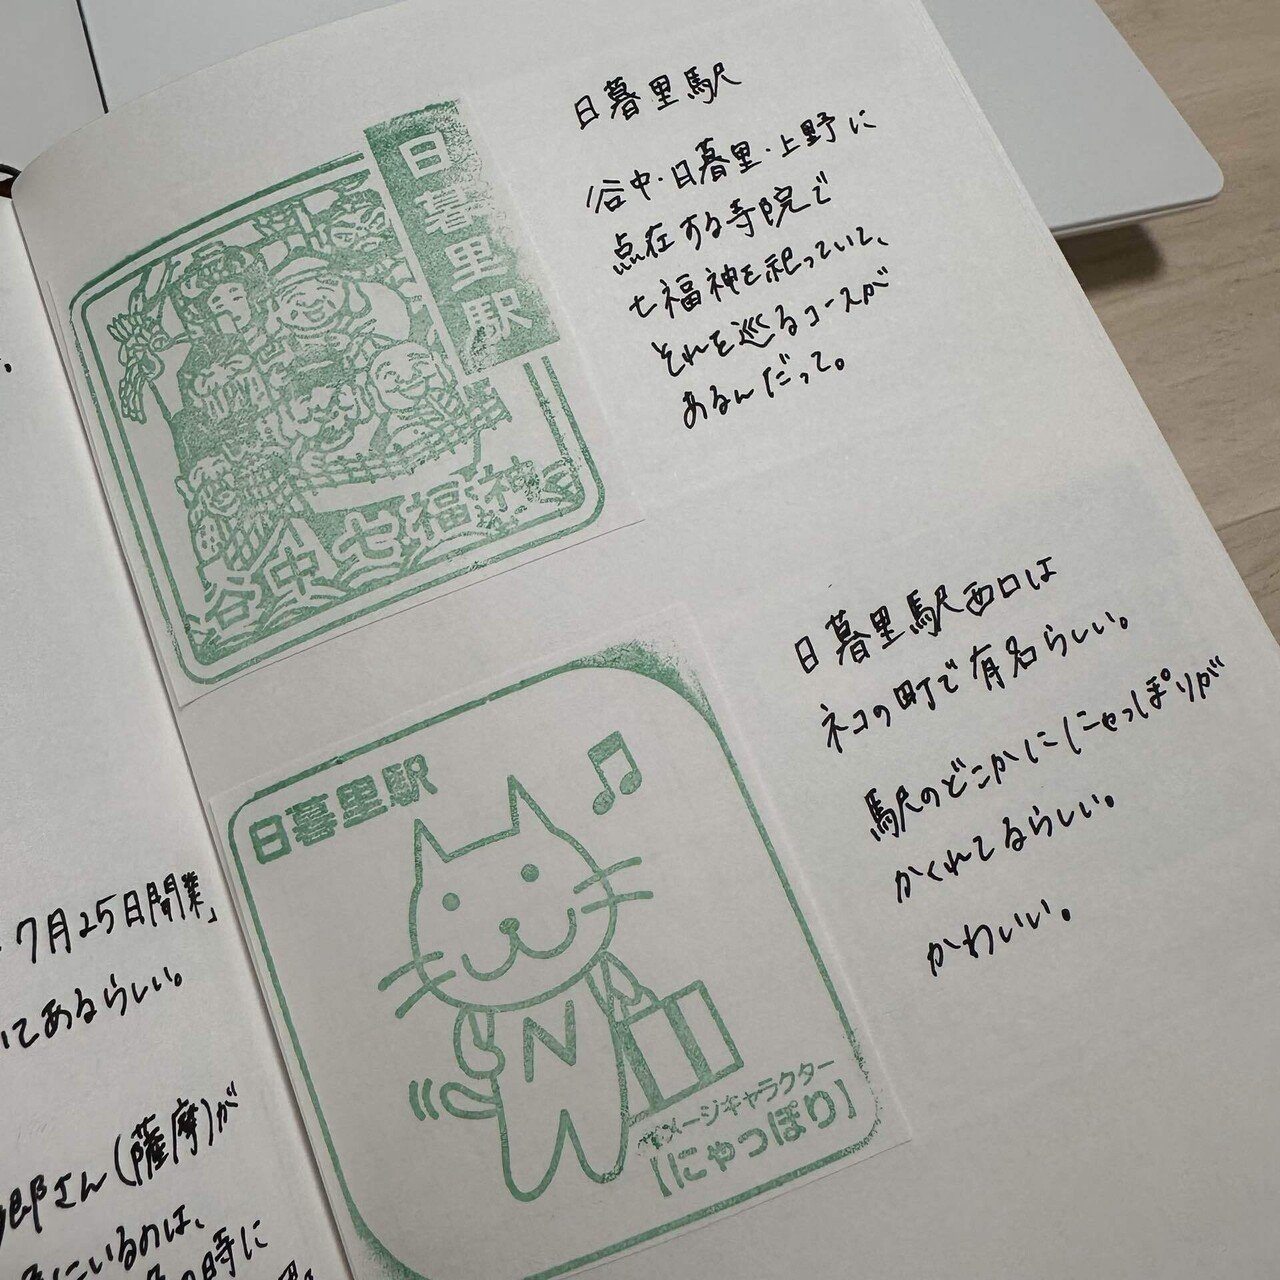 日暮里駅
谷中七福神
日暮里駅
谷中・日暮里・上野に
点在する寺院で
七福神を祀っていて、
それを巡るコースが
あるんだって。
日暮里駅
イメージキャラクター
【にゃっぽり】
日暮里駅西口は
ネコの町で有名らしい。
駅のどこかににゃっぽりが
かくれてるらしい。
かわいい。
7月25日開業」
いてあるらしい。
郎さん(薩摩)が
にいるのは、
の時に